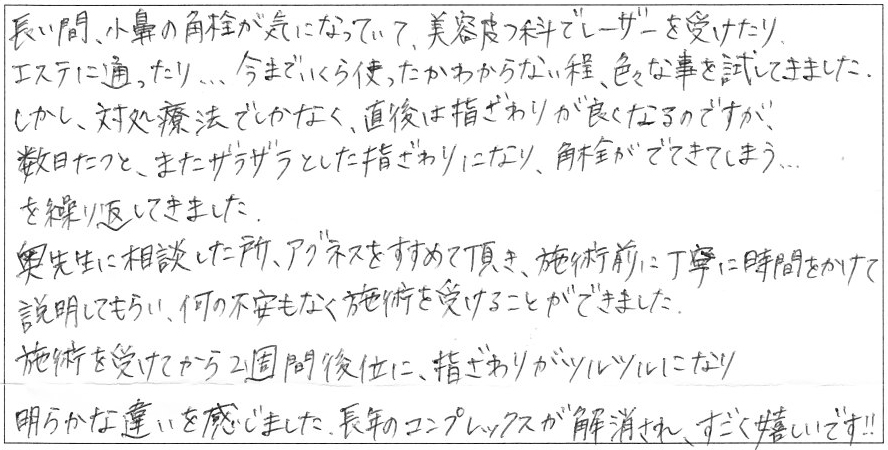 長い間、小鼻の角栓が気になっていて、美容皮フ科でレーザーを受けたり、
エステに通ったり… 今までいくら使ったかわからない程、色々な事を試してきました.
しかし、対処療法でしかなく、直後は指ざわりが良くなるのですが、
数日たつと、またザラザラとした指ざわりになり、角栓がでてきてしまう…
を繰り返してきました.
奥先生に相談した所、アグネスをすすめて頂き、施術前に丁寧に時間をかけて
説明してもらい、何の不安もなく施術を受けることができました.
施術を受けてから2週間後位に、指ざわりがツルツルになり
明らかな違いを感じました.長年のコンプレックスが解消され、すごく嬉しいです!!